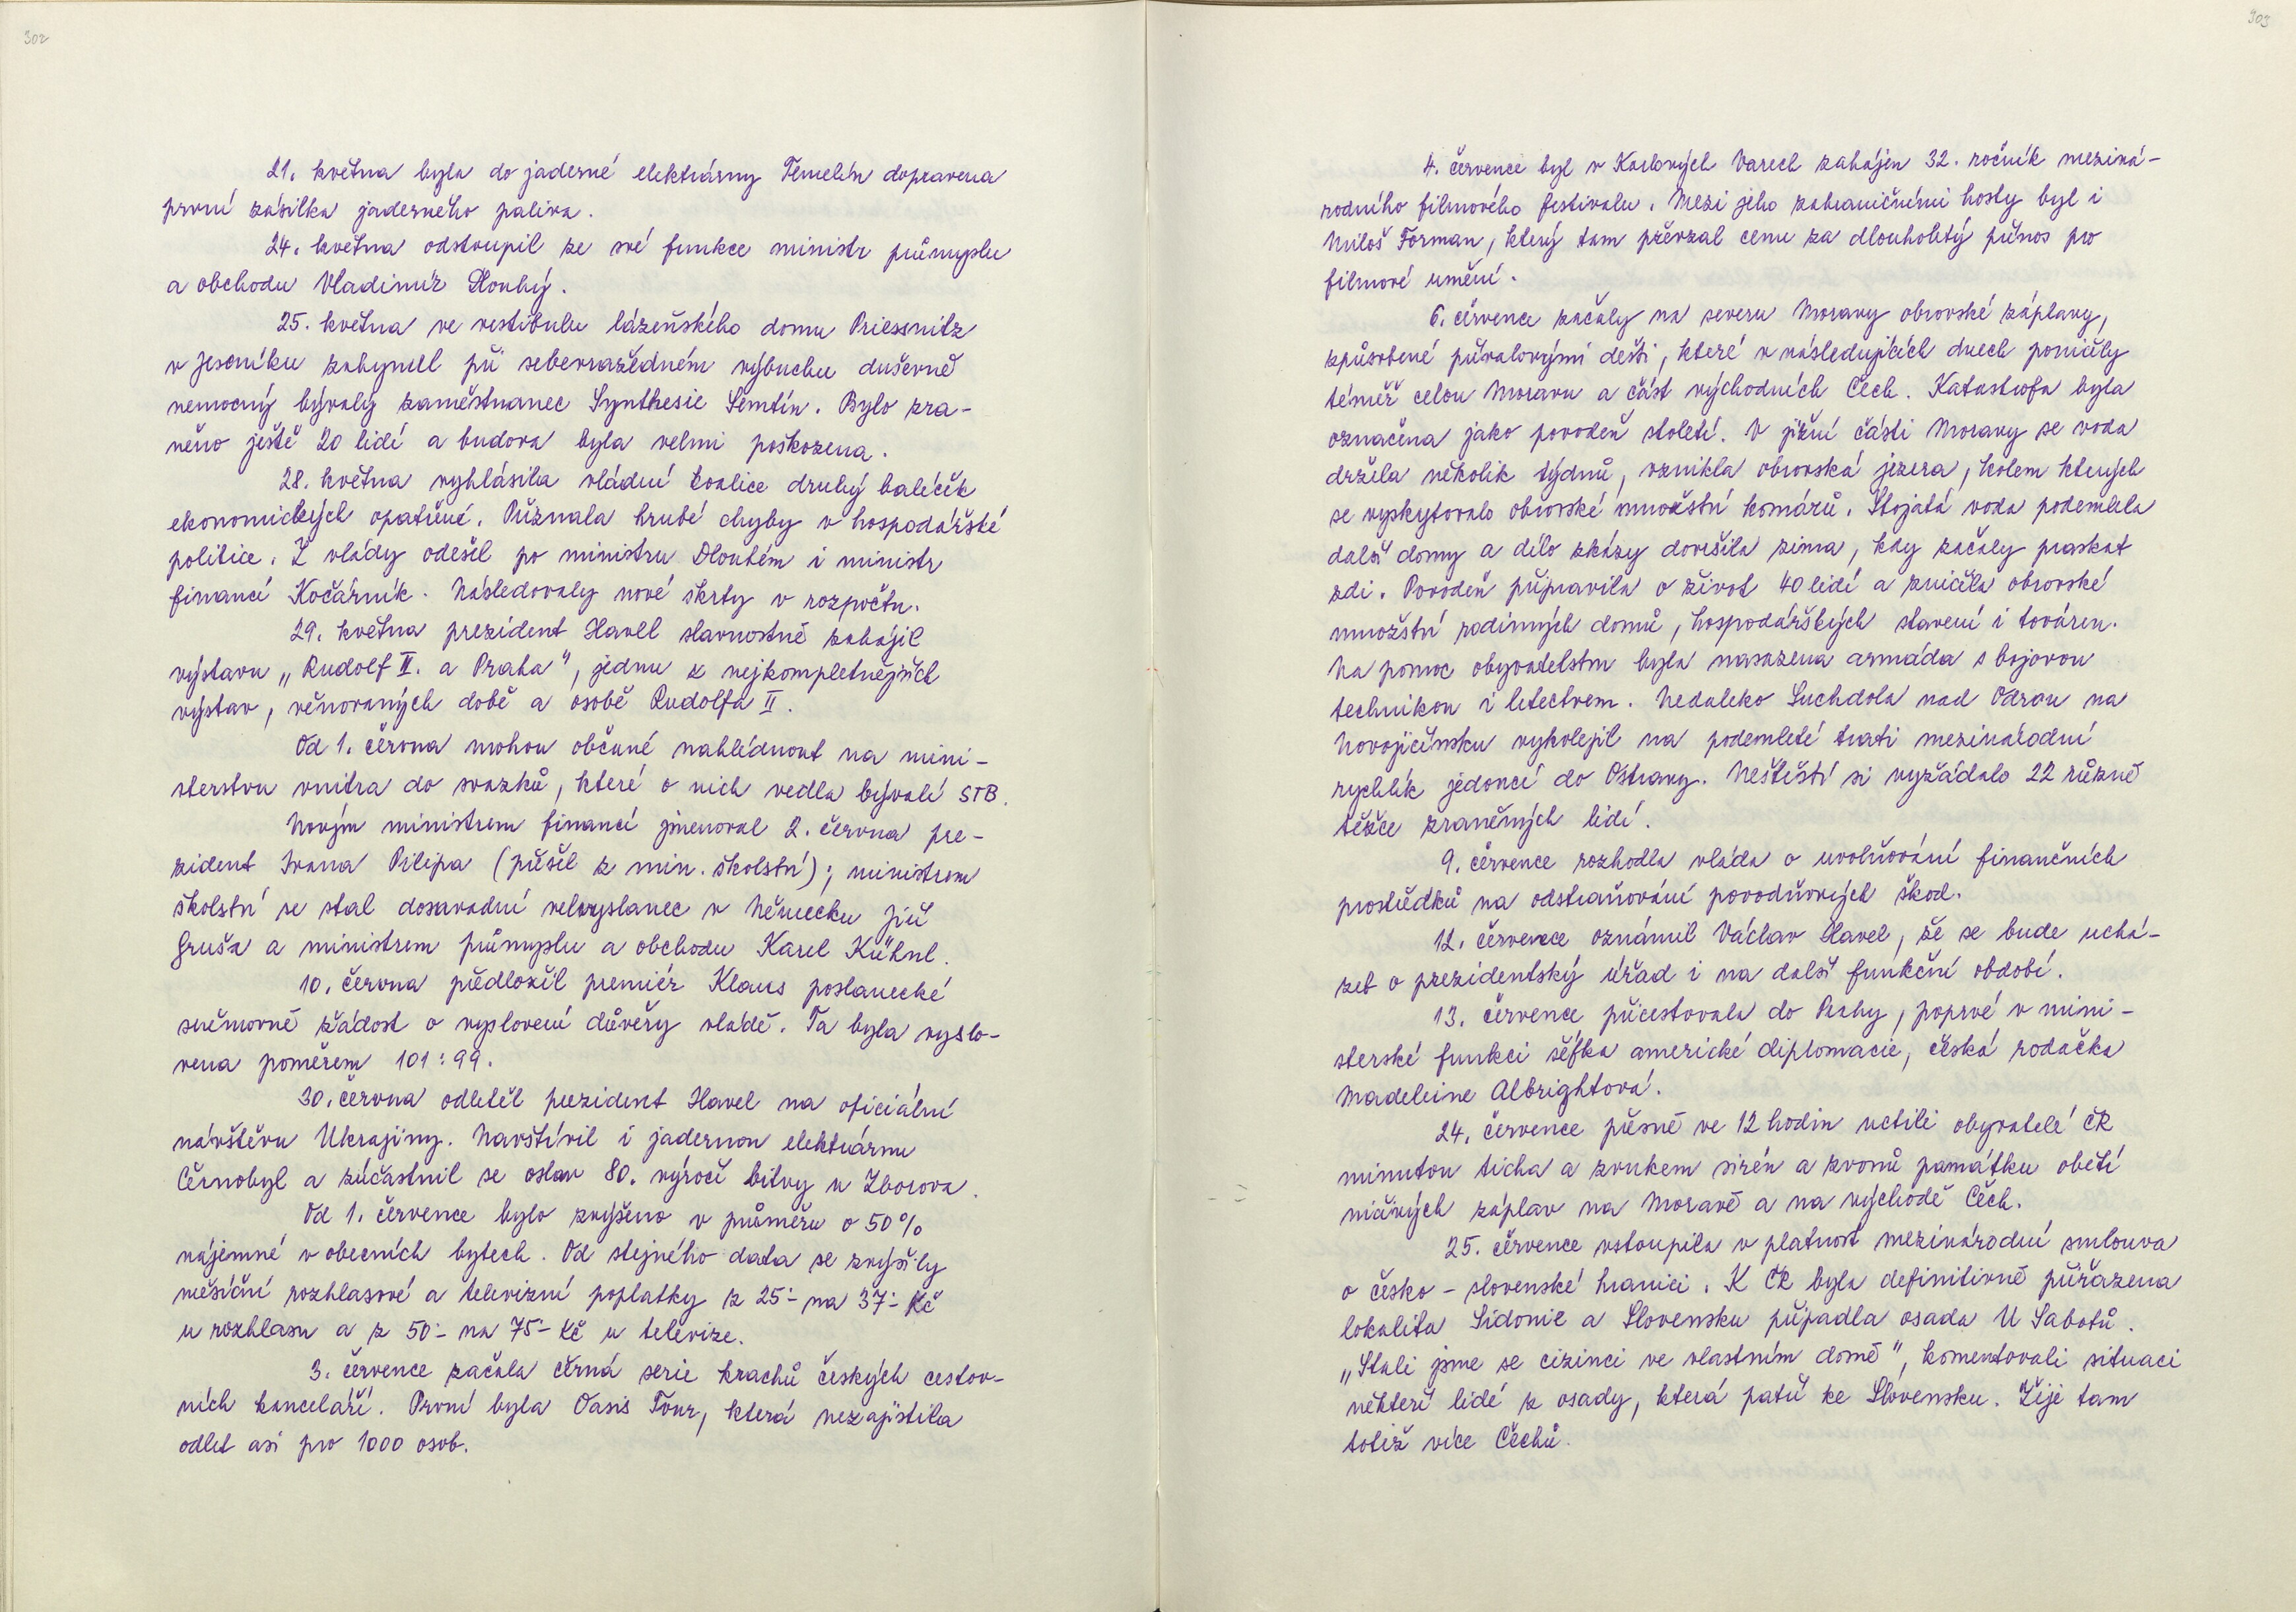 302
21. května byla do jaderné elektrárny Temelín dopravena
první zásilka jaderného paliva.
24. května odstoupil ze své funkce ministr průmyslu
a obchodu Vladimír Dlouhý.
25. května ve vestibulu lázeňského domu Priessnitz
v Jeseníku zahynul při sebevražedném výbuchu duševně
nemocný bývalý zaměstnanec Synthesie Semtín. Bylo zra-
něno ještě 20 lidí a budova byla velmi poškozena.
28. května vyhlásila vládní koalice druhý balíček
ekonomických opatření. Přiznala hrubé chyby v hospodářské
politice. Z vlády odešel po ministru Dlouhém i ministr
financí Kočárník. Následovaly nové škrty v rozpočtu.
29. května prezident Havel slavnostně zahájil
výstavu „Rudolf II. a Praha", jednu z nejkompletnějších
výstav, věnovaných době a osobě Rudolfa II.
Od 1. června mohou občané nahlédnout na mini-
sterstvu vnitra do svazků, které o nich vedla bývalá STB.
Novým ministrem financí jmenoval 2. června pre-
zident Ivana Pilipa (přešel z min. školství); ministrem
školství se stal dosavadní velvyslanec v Německu Jiří
Gruša a ministrem průmyslu a obchodu Karel Kühnl.
10. června předložil premiér Klaus poslanecké
sněmovně žádost o vyslovení důvěry vládě. Ta byla vyslo-
vena poměrem 101:99.
30. června odletěl prezident Havel na oficiální
návštěvu Ukrajiny. Navštívil i jadernou elektrárnu
Černobyl a zúčastnil se oslav 80. výročí bitvy u Zborova.
Od 1. července bylo zvýšeno v průměru o 50%
nájemné v obecních bytech. Od stejného data se zvýšily
měsíční rozhlasové a televizní poplatky z 25.- na 37.- Kč
u rozhlasu a z 50.- na 75.- Kč u televize.
3. července začala černá serie krachů českých cestov-
ních kanceláří. První byla Oasis Tour, která nezajistila
odlet asi pro 1000 osob.
303
4. července byl v Karlových Varech zahájen 32. ročník meziná-
rodního filmového festivalu. Mezi jeho zahraničními hosty byl i
Miloš Forman, který tam převzal cenu za dlouholetý přínos pro
filmové umění.
6. července začaly na severu Moravy obrovské záplavy,
způsobené přívalovými dešti, které v následujících dnech poničily
téměř celou Moravu a část východních Čech. Katastrofa byla
označena jako povodeň století. V jižní části Moravy se voda
držela několik týdnů, vznikla obrovská jezera, kolem kterých
se vyskytovalo obrovské množství komárů. Stojatá voda podemlela
další domy a dílo zkázy dovršila zima, kdy začaly praskat
zdi. Povodeň připravila o život 40 lidí a zničila obrovské
množství rodinných domů, hospodářských stavení i továren.
Na pomoc obyvatelstvu byla nasazena armáda s bojovou
technikou i letectvem. Nedaleko Suchdola nad Odrou na
Novojičínsku vykolejil na podemleté trati mezinárodní
rychlík jedoucí do Ostravy. Neštěstí si vyžádalo 22 různě
těžce zraněných lidí.
9. července rozhodla vláda o uvolňování finančních
prostředků na odstraňování povodňových škod.
12. července oznámil Václav Havel, že se bude uchá-
zet o prezidentský úřad i na další funkční období.
13. července přicestovala do Prahy, poprvé v mini-
sterské funkci šéfka americké diplomacie, česká rodačka
Madeleine Albrightová.
24. července přesně ve 12 hodin uctili obyvatelé ČR
minutou ticha a zvukem sirén a zvonů památku obětí
ničivých záplav na Moravě a na východě Čech.
25. července vstoupila v platnost mezinárodní smlouva
o česko-slovenské hranici. K ČR byla definitivně přiřazena
lokalita Sidonie a Slovensku připadla osada U Sabotů.
„Stali jsme se cizinci ve vlastním domě", komentovali situaci
někteří lidé z osady, která patří ke Slovensku. Žije tam
totiž více Čechů.